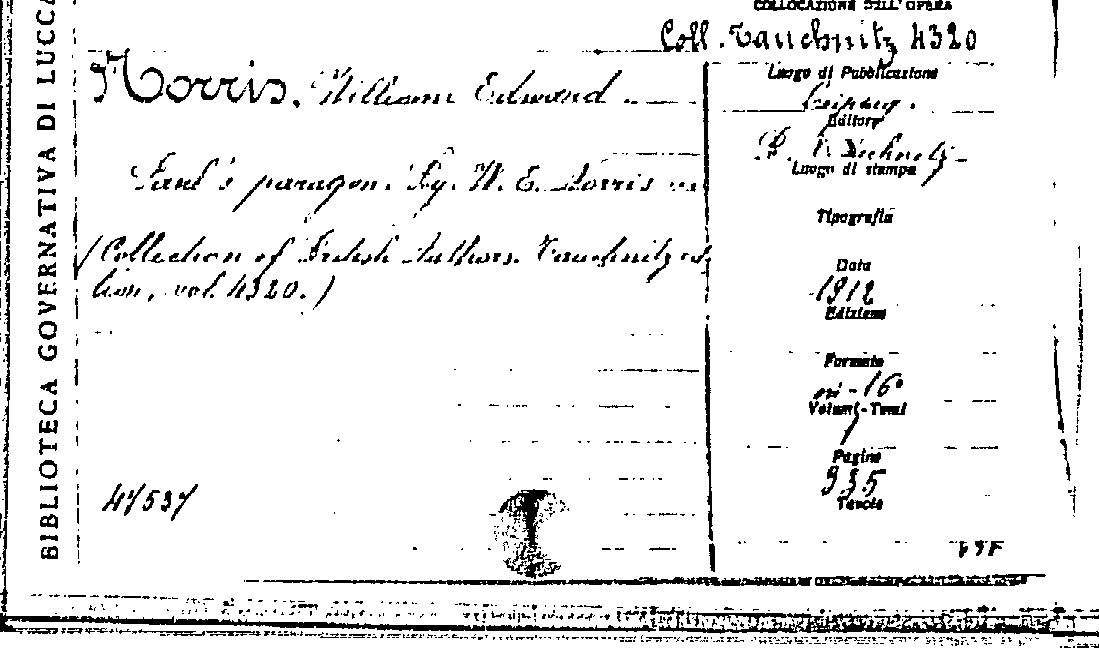 BIBLIOTECA GOVERNATIVA DI LUCCA
COLLOCAZIONE DELL'OPERA
Coll. Tauchnitz 4320
Norris, William Edward
Paul's paragon. By W. E. Norris
(Collection of British Authors. Tauchnitz edi-
tion, vol. 4320.)
47537
Luogo di Pubblicazione
Leipzig.
Editore
B. Tauchnitz
Luogo di stampa
Tipografia
Data
1912
Edizione
Formato
in-16°
Volumi-Tomi
1
Pagine
335
Tavole